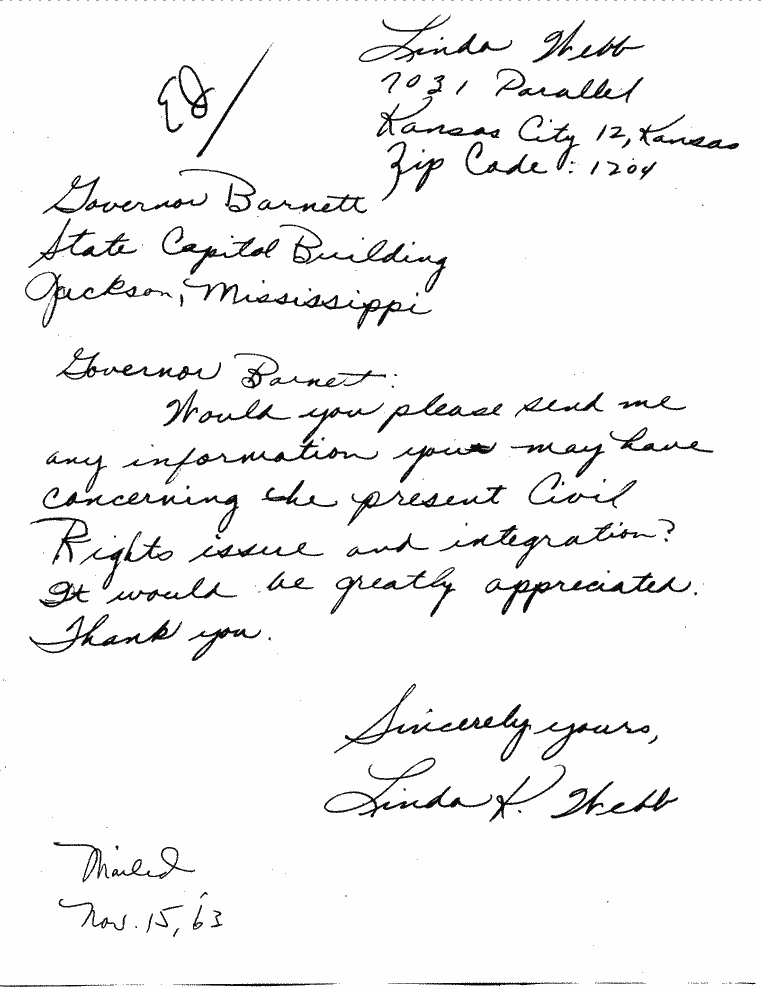 Linda Webb
7031 Parallel
Kansas City 12, Kansas
Zip Code: 1204
Governor Barnett
State Capitol Building
Jackson, Mississippi
Governor Barnett:
Would you please send me
any information you may have
concerning the present Civil
Rights issue and integration?
It would be greatly appreciated.
Thank you.
Sincerely yours,
Linda K. Webb
Mailed
Nov. 15, 63